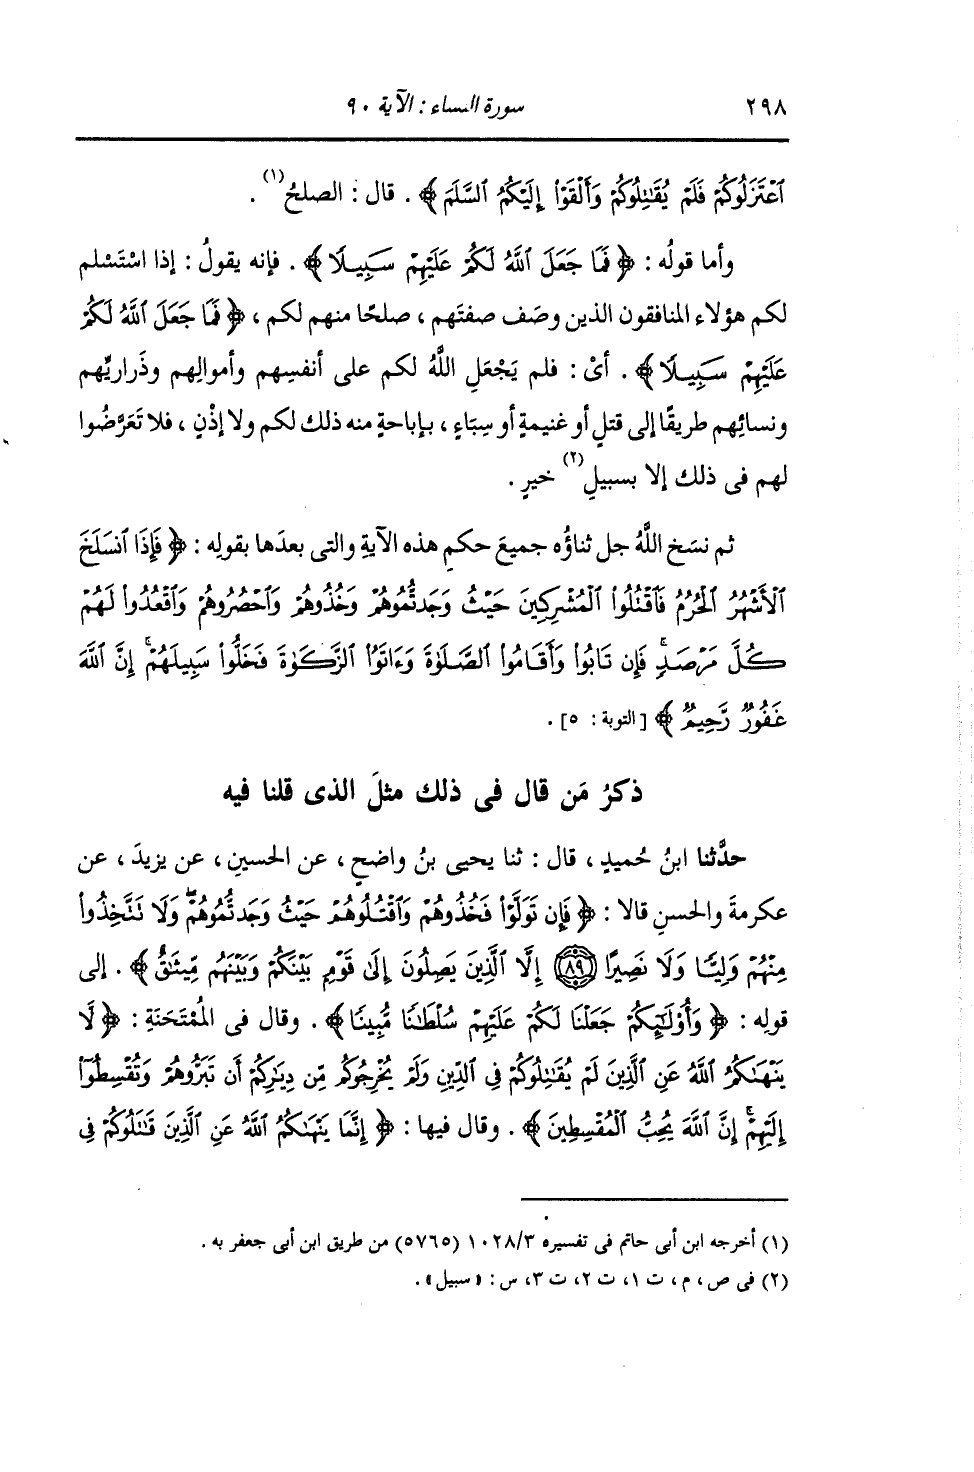 ٢٩٨ سورة النساء : الآية ٩٠
ٱعْتَزَلُوكُمْ فَلَمْ يُقَٰتِلُوكُمْ وَأَلْقَوْا۟ إِلَيْكُمُ ٱلسَّلَمَ ﴾ . قال : الصلحُ(١) .
وأما قولُه : ﴿ فَمَا جَعَلَ ٱللَّهُ لَكُمْ عَلَيْهِمْ سَبِيلًا ﴾ . فإنه يقولُ : إذا اسْتَسْلم
لكم هؤلاء المنافقون الذين وصَف صفتَهم ، صلحًا منهم لكم ، ﴿ فَمَا جَعَلَ ٱللَّهُ لَكُمْ
عَلَيْهِمْ سَبِيلًا ﴾ . أىْ : فلم يَجْعَلِ اللَّهُ لكم على أنفسِهم وأموالِهم وذَراريِّهم
ونسائِهم طريقًا إلى قتلٍ أو غنيمةٍ أو سِبَاءٍ ، بإباحةٍ منه ذلك لكم ولا إذْنٍ ، فلا تَعَرَّضُوا
لهم فى ذلك إلا بسبيلِ(٢) خيرٍ .
ثم نسَخ اللَّهُ جل ثناؤُه جميعَ حكمِ هذه الآيةِ والتى بعدَها بقولِه : ﴿ فَإِذَا ٱنسَلَخَ
ٱلْأَشْهُرُ ٱلْحُرُمُ فَٱقْتُلُوا۟ ٱلْمُشْرِكِينَ حَيْثُ وَجَدتُّمُوهُمْ وَخُذُوهُمْ وَٱحْصُرُوهُمْ وَٱقْعُدُوا۟ لَهُمْ
كُلَّ مَرْصَدٍ ۚ فَإِن تَابُوا۟ وَأَقَامُوا۟ ٱلصَّلَوٰةَ وَءَاتَوُا۟ ٱلزَّكَوٰةَ فَخَلُّوا۟ سَبِيلَهُمْ ۚ إِنَّ ٱللَّهَ
غَفُورٌ رَّحِيمٌ ﴾ [التوبة : ٥] .
ذكرُ مَن قال فى ذلك مثلَ الذى قلنا فيه
حدَّثنا ابنُ حُميدٍ ، قال : ثنا يحيى بنُ واضحٍ ، عن الحسينِ ، عن يزيدَ ، عن
عكرمةَ والحسنِ قالا : ﴿ فَإِن تَوَلَّوْا۟ فَخُذُوهُمْ وَٱقْتُلُوهُمْ حَيْثُ وَجَدتُّمُوهُمْ ۖ وَلَا تَتَّخِذُوا۟
مِنْهُمْ وَلِيًّا وَلَا نَصِيرًا ﴿٨٩﴾ إِلَّا ٱلَّذِينَ يَصِلُونَ إِلَىٰ قَوْمٍۭ بَيْنَكُمْ وَبَيْنَهُم مِّيثَٰقٌ ﴾ . إلى
قولِه : ﴿ وَأُو۟لَٰٓئِكُمْ جَعَلْنَا لَكُمْ عَلَيْهِمْ سُلْطَٰنًا مُّبِينًا ﴾ . وقال فى المُمْتَحَنَةِ : ﴿ لَّا
يَنْهَىٰكُمُ ٱللَّهُ عَنِ ٱلَّذِينَ لَمْ يُقَٰتِلُوكُمْ فِى ٱلدِّينِ وَلَمْ يُخْرِجُوكُم مِّن دِيَٰرِكُمْ أَن تَبَرُّوهُمْ وَتُقْسِطُوٓا۟
إِلَيْهِمْ ۚ إِنَّ ٱللَّهَ يُحِبُّ ٱلْمُقْسِطِينَ ﴾ . وقال فيها : ﴿ إِنَّمَا يَنْهَىٰكُمُ ٱللَّهُ عَنِ ٱلَّذِينَ قَٰتَلُوكُمْ فِى
(١) أخرجه ابن أبى حاتم فى تفسيره ١٠٢٨/٣ (٥٧٦٥) من طريق ابن أبى جعفر به .
(٢) فى ص ، م ، ت ١، ت ٢، ت ٣، س : « سبيل » .